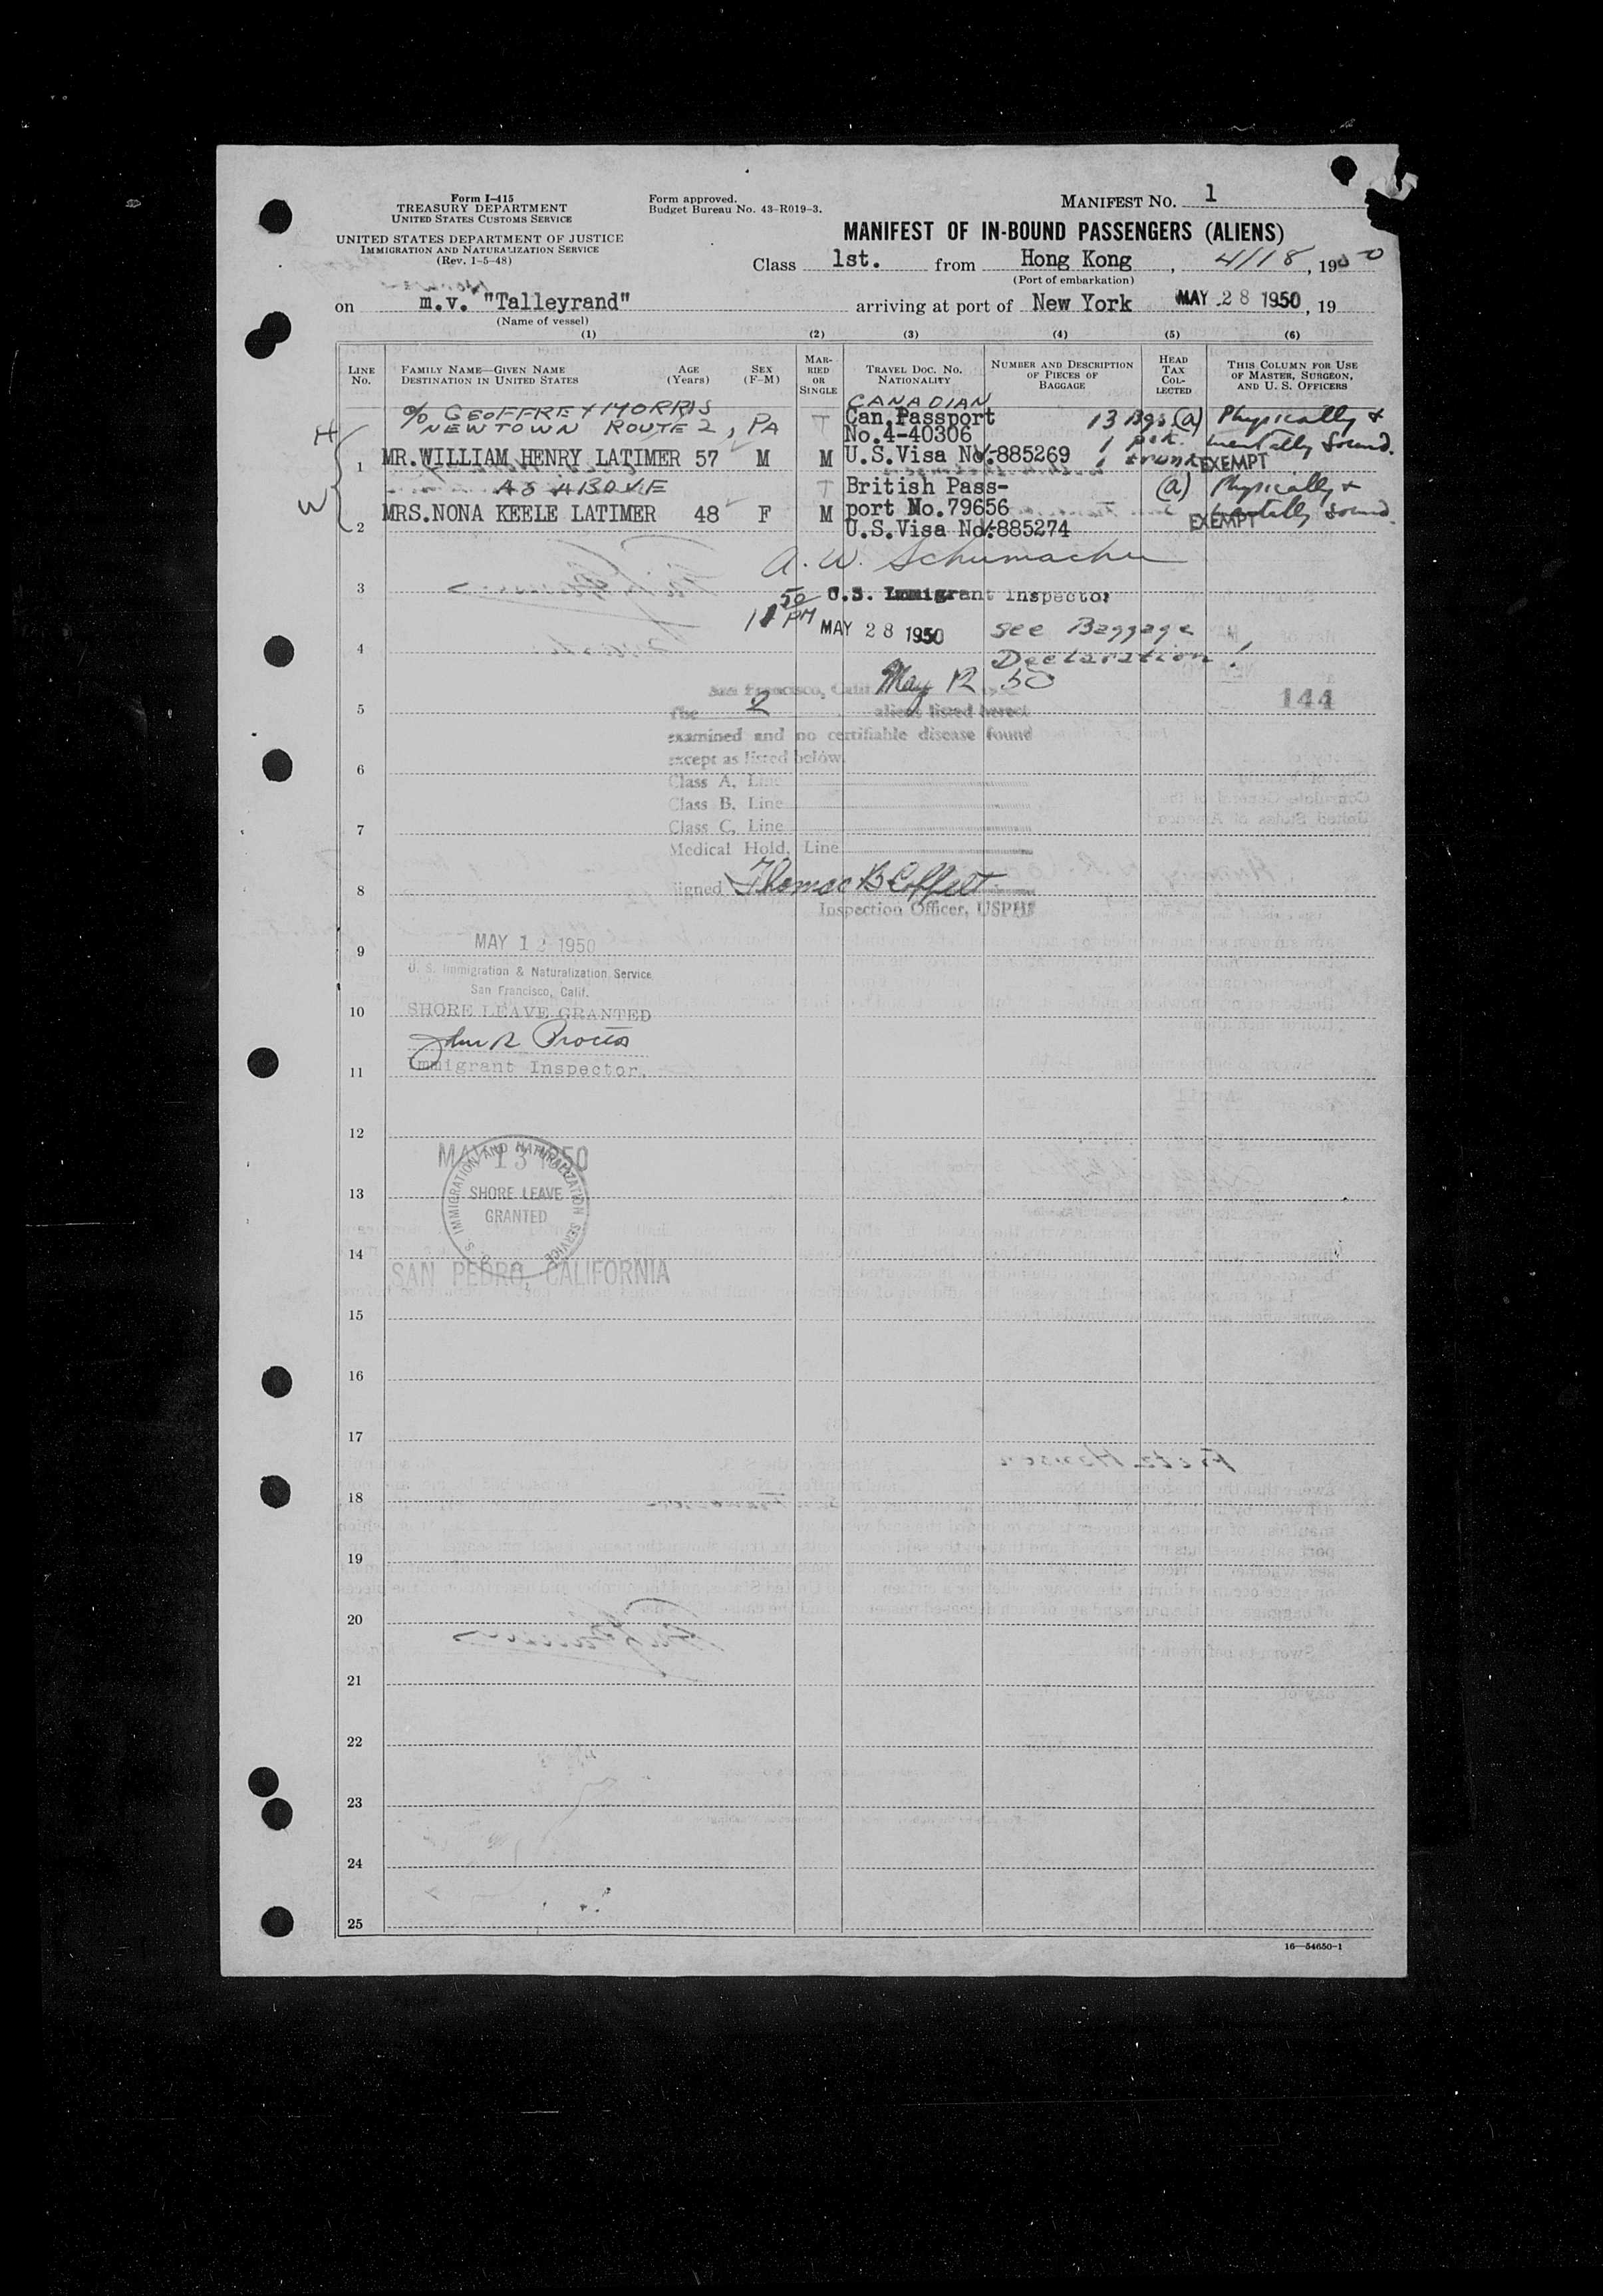 Form I-415
TREASURY DEPARTMENT
UNITED STATES CUSTOMS SERVICE
UNITED STATES DEPARTMENT OF JUSTICE
IMMIGRATION AND NATURALIZATION SERVICE
(Rev. 1-5-48)
Form approved.
Budget Bureau No. 43-R019-3.
MANIFEST NO. 1
MANIFEST OF IN-BOUND PASSENGERS (ALIENS)
Class 1st. from Hong Kong, 4/18, 1950
(Port of embarkation)
on m.v. "Talleyrand" arriving at port of New York MAY 28 1950, 19
(Name of vessel)
(1) (2) (3) (4) (5) (6)
LINE No.
FAMILY NAME—GIVEN NAME
DESTINATION IN UNITED STATES
AGE (Years)
SEX (F-M)
MARRIED OR SINGLE
TRAVEL DOC. NO. NATIONALITY
NUMBER AND DESCRIPTION OF PIECES OF BAGGAGE
HEAD TAX COLLECTED
THIS COLUMN FOR USE OF MASTER, SURGEON, AND U. S. OFFICERS
% GEOFFREY MORRIS CANADIAN
NEWTOWN ROUTE 2, PA T Can.Passport 13 Bgs (a) Physically &
H No.4-40306 1 pck. mentally sound.
1 MR.WILLIAM HENRY LATIMER 57 M M U.S.Visa No.-885269 1 trunk EXEMPT
AS ABOVE T British Pass- (a) Physically &
W
2 MRS.NONA KEELE LATIMER 48 F M port No.79656 EXEMPT mentally sound.
U.S.Visa No.-885274
A. W. Schumacher
3 U.S. Immigrant Inspector
11 50 PM MAY 28 1950 See Baggage
4 Declaration!
San Francisco, Calif. May 12 50
144
5 The 2 aliens listed hereon
examined and no certifiable disease found
6 except as listed below.
Class A, Line
Class B, Line
7 Class C, Line
Medical Hold, Line
8 signed Thomas B Coffelt
Inspection Officer, USPHS
MAY 12 1950
9
U. S. Immigration & Naturalization Service
San Francisco, Calif.
10 SHORE LEAVE GRANTED
John R Proctor
11 Immigrant Inspector.
12
MAY 13 1950
U. S. IMMIGRATION AND NATURALIZATION SERVICE
13 SHORE LEAVE
GRANTED
14
SAN PEDRO, CALIFORNIA
15
16
17
18
19
20
21
22
23
24
25
16—54650-1